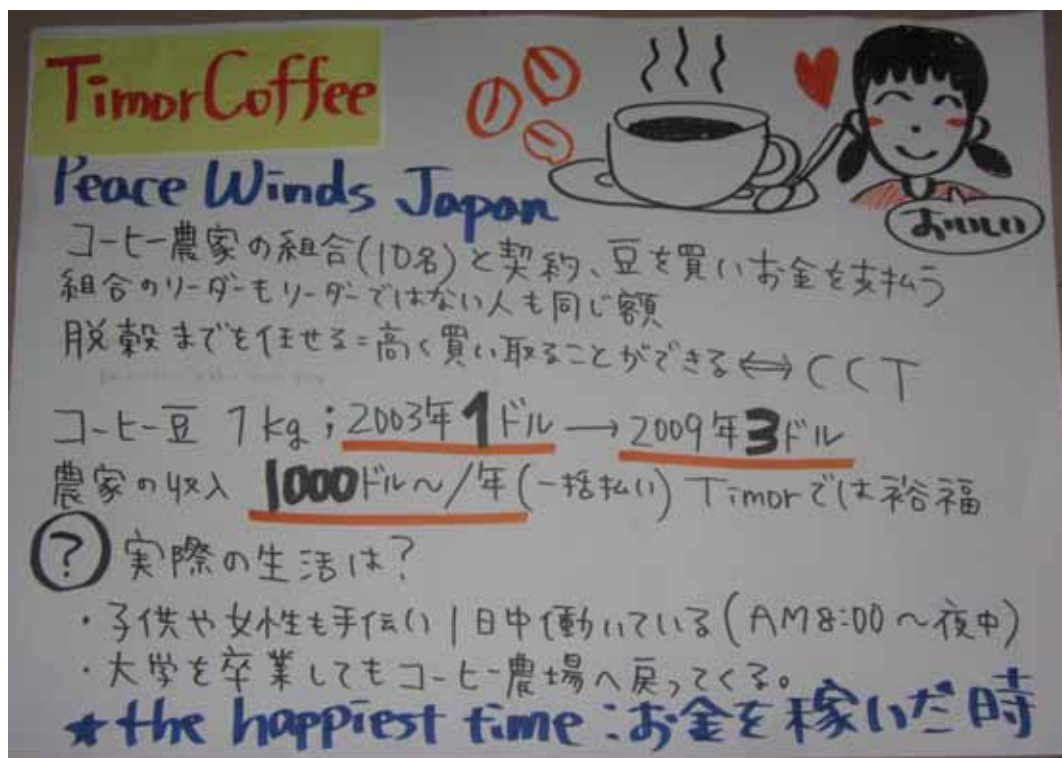 Timor Coffee
Peace Winds Japan
おいしい
コーヒー農家の組合(10名)と契約、豆を買いお金を支払う
組合のリーダーもリーダーではない人も同じ額
脱穀までを任せる=高く買い取ることができる⇔CCT
コーヒー豆 1kg;2003年1ドル→2009年3ドル
農家の収入 1000ドル〜/年(一括払い) Timorでは裕福
? 実際の生活は?
・子供や女性も手伝い1日中働いている(AM8:00〜夜中)
・大学を卒業してもコーヒー農場へ戻ってくる。
★the happiest time:お金を稼いだ時